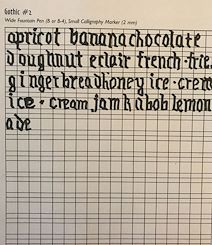 Gothic #2
Wide Fountain Pen (B or B-4), Small Calligraphy Marker (2 mm)
apricot banana chocolate
doughnut eclair french-frie,
gingerbread honey ice-crem
ice-cream jam kabob lemon
ade